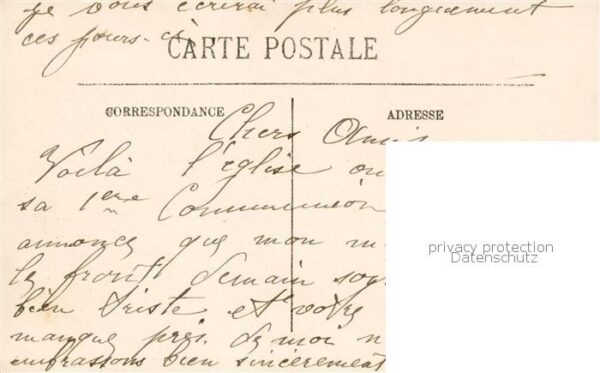 je vous écrirai plus longuement
ces jours-ci.
CARTE POSTALE
CORRESPONDANCE
ADRESSE
Chers Amis
Voilà l'église
sa 1ère Communion
annoncez que mon
le front demain
bien triste et votre
manque près de moi
embrassons bien sincèrement
privacy protection
Datenschutz